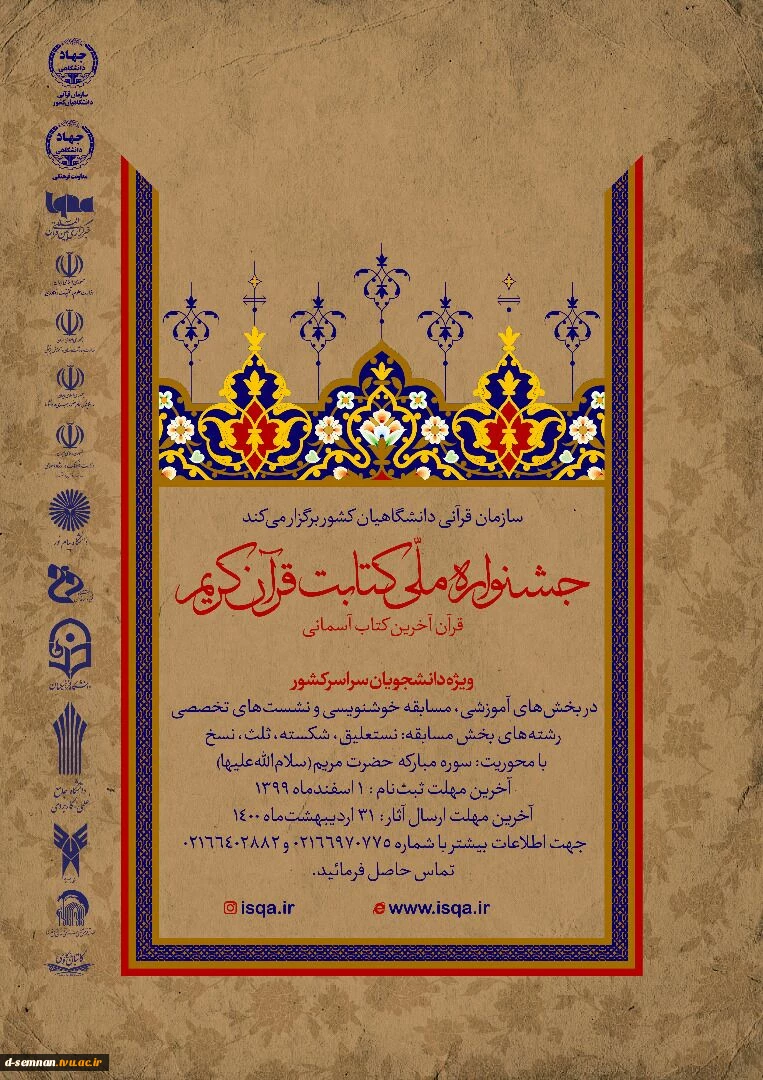 سازمان قرآنی دانشگاهیان کشور برگزار می‌کند
جشنواره ملّی کتابت قرآن کریم
قرآن آخرین کتاب آسمانی
ویژه دانشجویان سراسر کشور
در بخش‌های آموزشی، مسابقه خوشنویسی و نشست‌های تخصصی
رشته‌های بخش مسابقه: نستعلیق، شکسته، ثلث، نسخ
با محوریت: سوره مبارکه حضرت مریم (سلام‌الله‌علیها)
آخرین مهلت ثبت‌نام: ۱ اسفندماه ۱۳۹۹
آخرین مهلت ارسال آثار: ۳۱ اردیبهشت‌ماه ۱۴۰۰
جهت اطلاعات بیشتر با شماره ۰۲۱۶۶۹۷۰۷۷۵ و ۰۲۱۶۶۴۰۲۸۸۲
تماس حاصل فرمائید.
isqa.ir www.isqa.ir
جهاد
دانشگاهی
سازمان قرآنی
دانشگاهیان کشور
جهاد
دانشگاهی
معاونت فرهنگی
iqna
دانشگاه پیام نور
دانشگاه فرهنگیان
دانشگاه جامع
علمی کاربردی
d-semnan.tvu.ac.ir